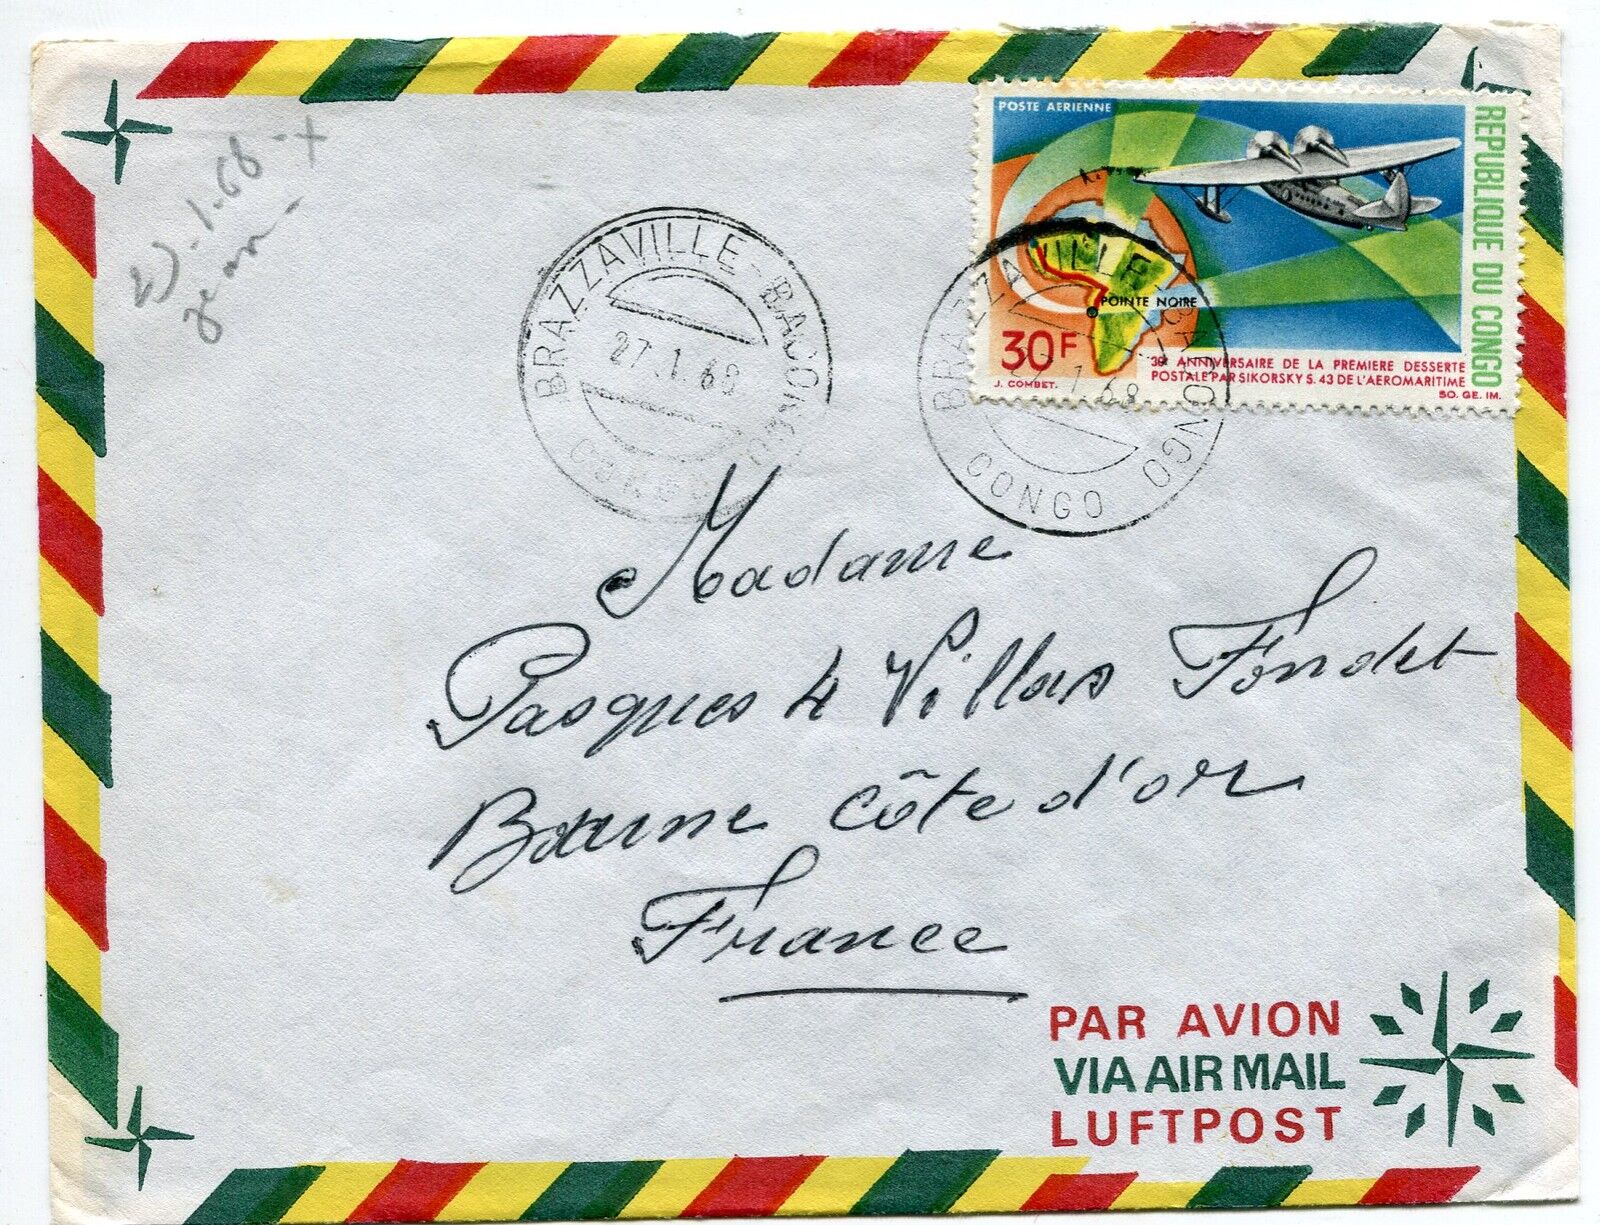 POSTE AERIENNE
REPUBLIQUE DU CONGO
POINTE NOIRE
30F
30e ANNIVERSAIRE DE LA PREMIERE DESSERTE
POSTALE PAR SIKORSKY S. 43 DE L'AEROMARITIME
J. COMBET.
SO. GE. IM.
BRAZZAVILLE-BACONGO
27.1.68
CONGO
BRAZZAVILLE-BACONGO
27.1.68
CONGO
1.68
Madame
Pasques 4 Villas Fondet
Beaune Côte d'or
France
PAR AVION
VIA AIR MAIL
LUFTPOST